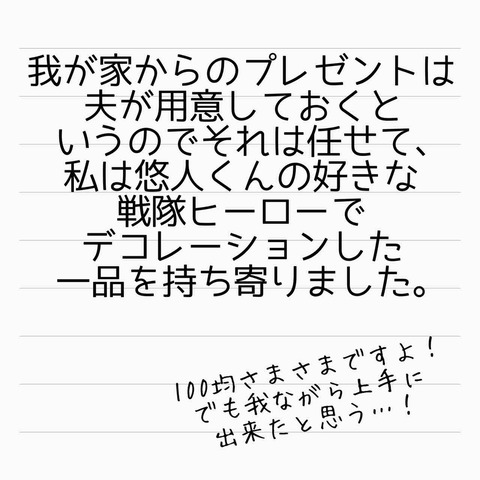 我が家からのプレゼントは
夫が用意しておくと
いうのでそれは任せて、
私は悠人くんの好きな
戦隊ヒーローで
デコレーションした
一品を持ち寄りました。
100均さまさまですよ！
でも我ながら上手に
出来たと思う…！